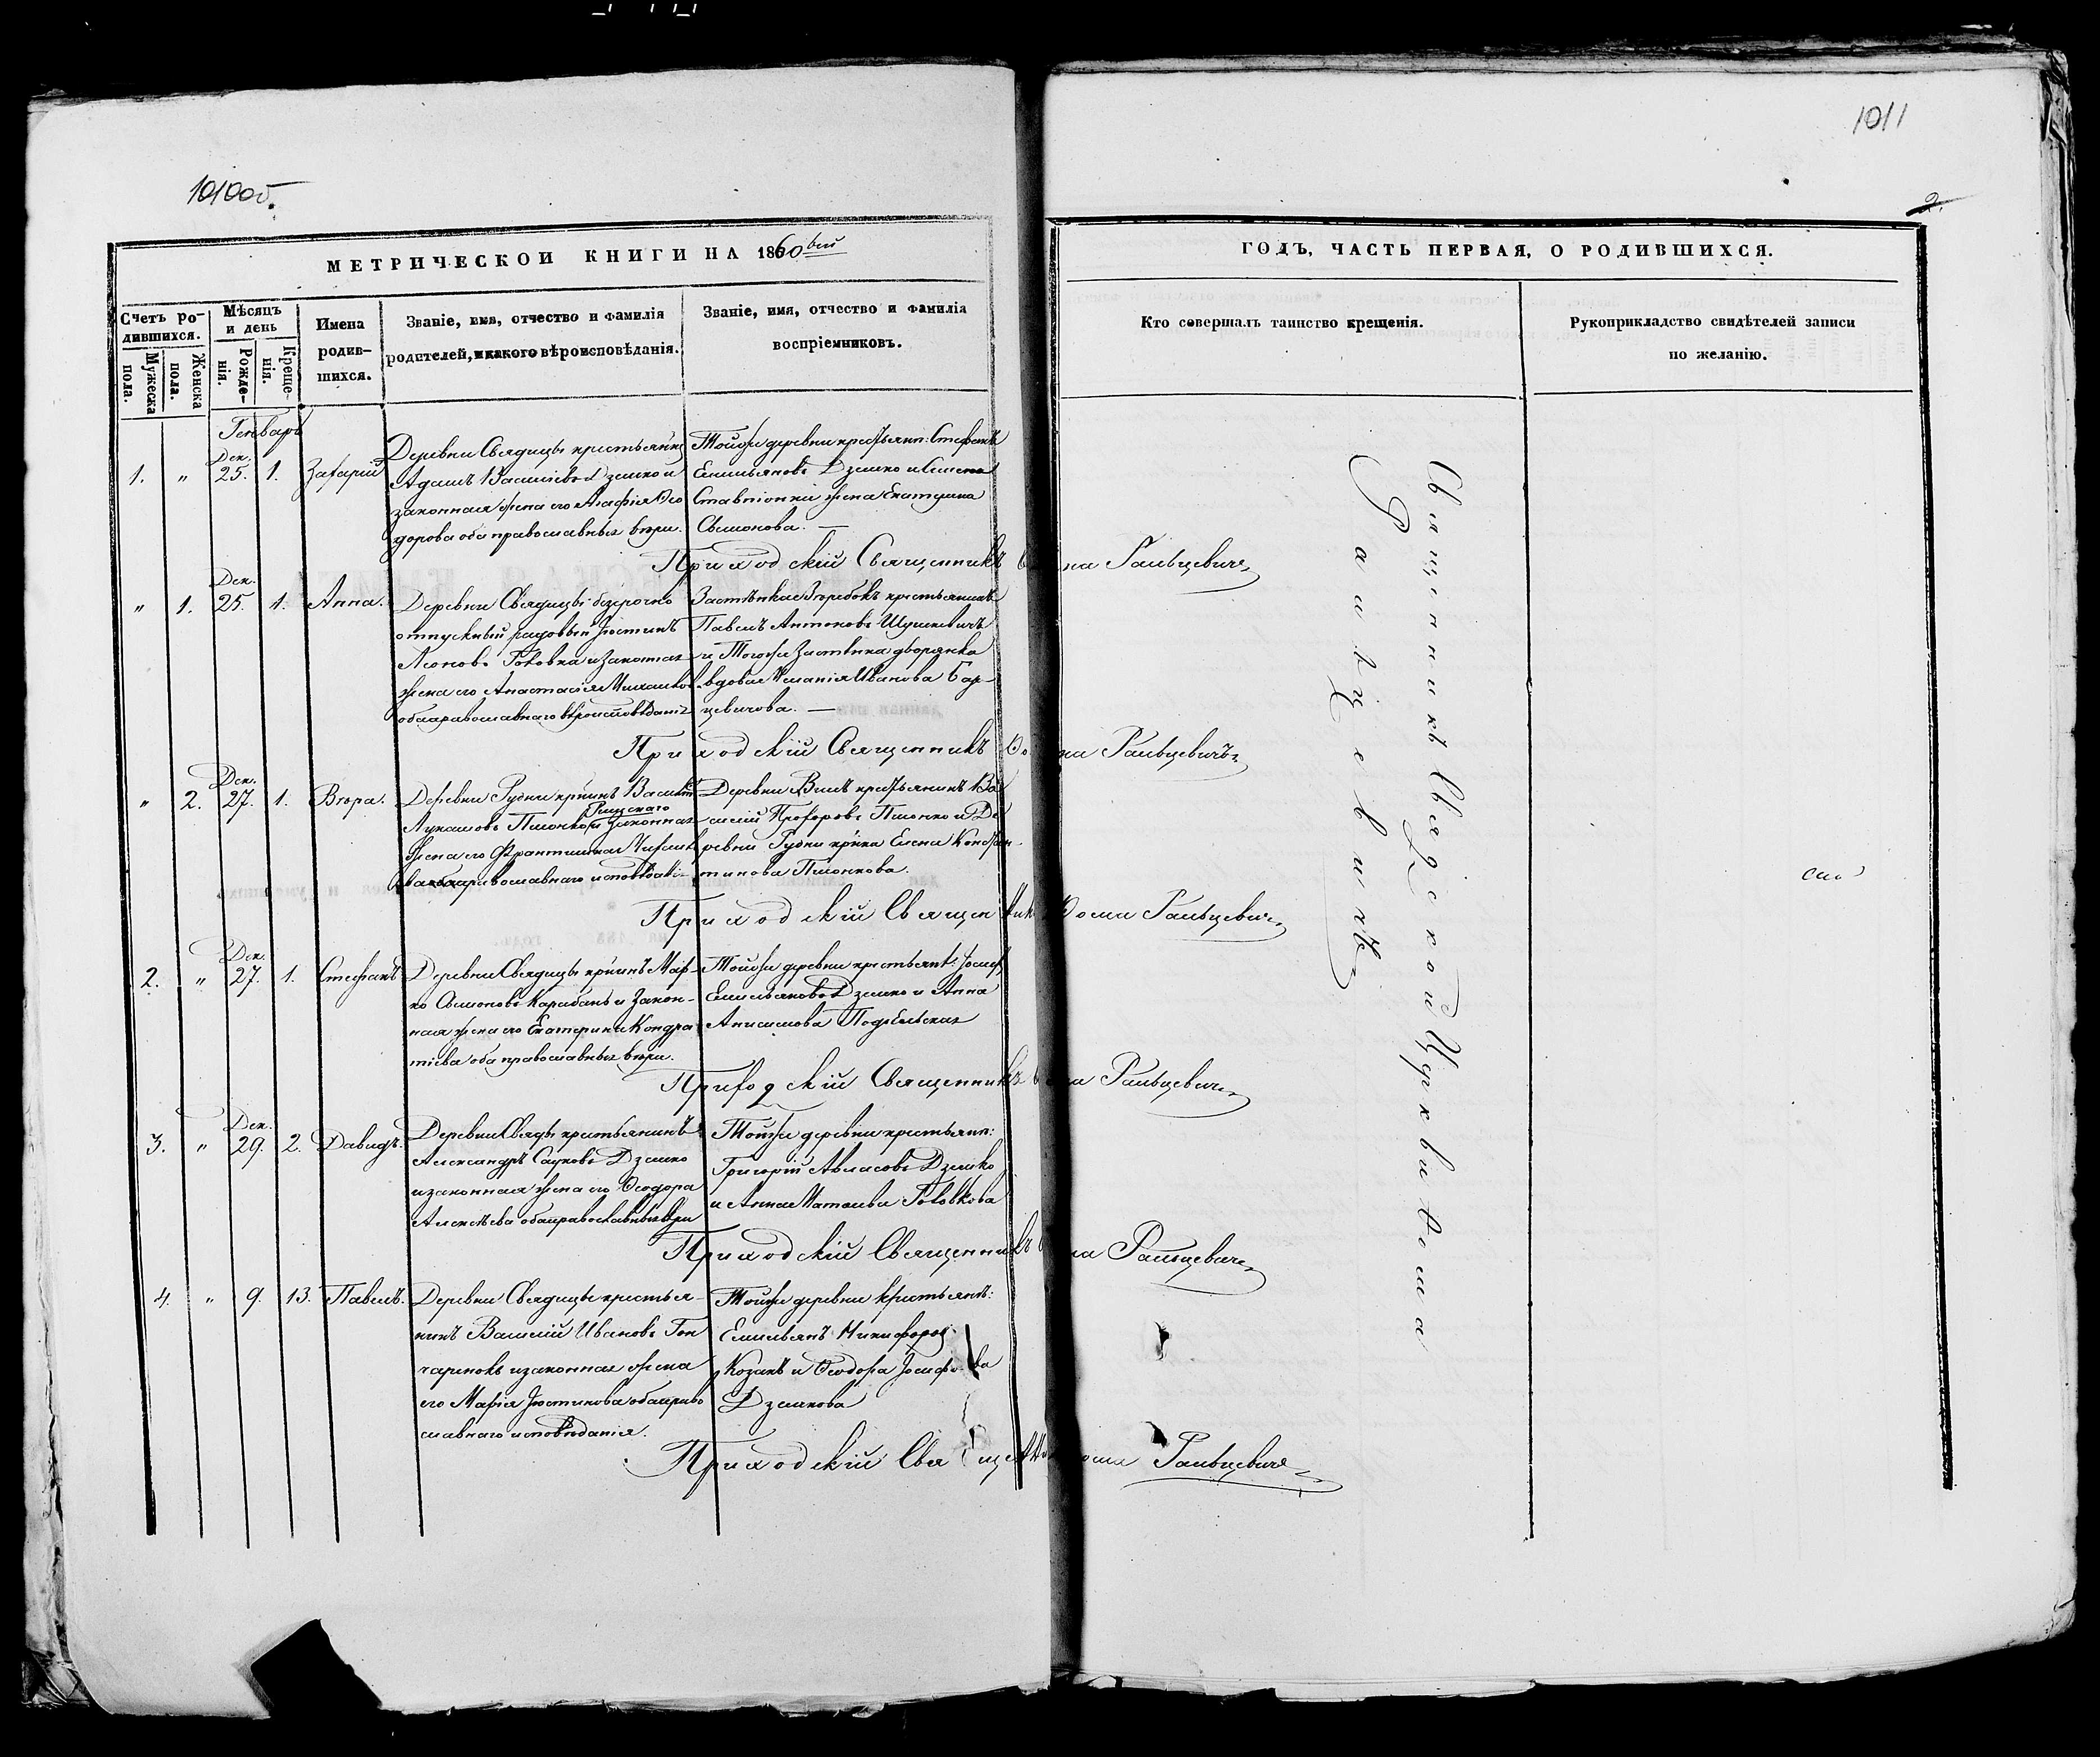 1010об.
1011
2.
МЕТРИЧЕСКОЙ КНИГИ НА 1860вый
ГОДЪ, ЧАСТЬ ПЕРВАЯ, О РОДИВШИХСЯ.
Счетъ родившихся.
Мужеска пола.
Женска пола.
Мѣсяцъ и день
Рожденія.
Крещенія.
Имена родившихся.
Званіе, имя, отчество и фамилія
родителей, и какого вѣроисповѣданія.
Званіе, имя, отчество и фамилія
воспріемниковъ.
Кто совершалъ таинство крещенія.
Рукоприкладство свидѣтелей записи
по желанію.
Генварь
1. " Дек. 25. 1. Захарій
Деревни Свядицы крестьянинъ
Адамъ Васильевъ Дземко и
законная жена его Агафія Ѳео
дорова оба православныя вѣры.
Тойже деревни крестьян: Стефанъ
Емильяновъ Дземко и
жена Екатерина
Сымонова. —
Приходскій Священникъ Ѳома Ральцевичъ
" 1. Дек. 25. 1. Анна.
Деревни Свядицы безсрочно
отпускный рядовый Іюстинъ
Леоновъ Головка и законная
жена его Анастасія Михайлова
оба православнаго вѣроисповѣданія
Застѣнка крестьянинъ
Павелъ Антоновъ Шушкевичъ
и Тогоже Застѣнка дворянка
вдова Меланія Иванова Бар-
цевичова. —
Приходскій Священникъ Ѳома Ральцевичъ
" 2. Дек. 27. 1. Вѣра.
Деревни Рудни кр-нинъ Василій
Лукашовъ Пшонко Римскаго и законная
жена его Франтишка
православнаго исповѣданія
Деревни крестьянинъ Ва
силій Прохоровъ Пшонко и Де
ревни Рудни кр-нка Елена Констан-
тинова Пшонкова.
Приходскій Священникъ Ѳома Ральцевичъ
2. " Дек. 27. 1. Стефанъ
Деревни Свядицы кр-нинъ Мар-
ко Сымоновъ Карабань и Закон-
ная жена его Екатерина Кондра
тіева оба православныя вѣры.
Тойже деревни крестьянъ: Іосифъ
Емильяновъ Дземко и Анна
Анисимова Подбельская
Приходскій Священникъ Ѳома Ральцевичъ
3. " Дек. 29. 2. Давидъ.
Деревни Свяды крестьянинъ
Александръ Сауковъ Дземко
и законная жена его Ѳеодора
Алексѣева оба православныя вѣры
Тойже деревни крестьян:
Григорій Авласовъ Дземко
и Анна Матвѣева Головкова
Приходскій Священникъ Ѳома Ральцевичъ
4. " 9. 13. Павелъ.
Деревни Свядицы крестья-
нинъ Василій Ивановъ Гон
чарикъ и законная жена
его Марія Іюстинова оба право
славнаго исповѣданія.
Тойже деревни крестьянъ:
Емильянъ Никифоров
Козакъ и Ѳеодора Іосифова
Дземкова
Приходскій Священникъ Ѳома Ральцевичъ
Священникъ Свядской Церкви Ѳома
Ральцевичъ